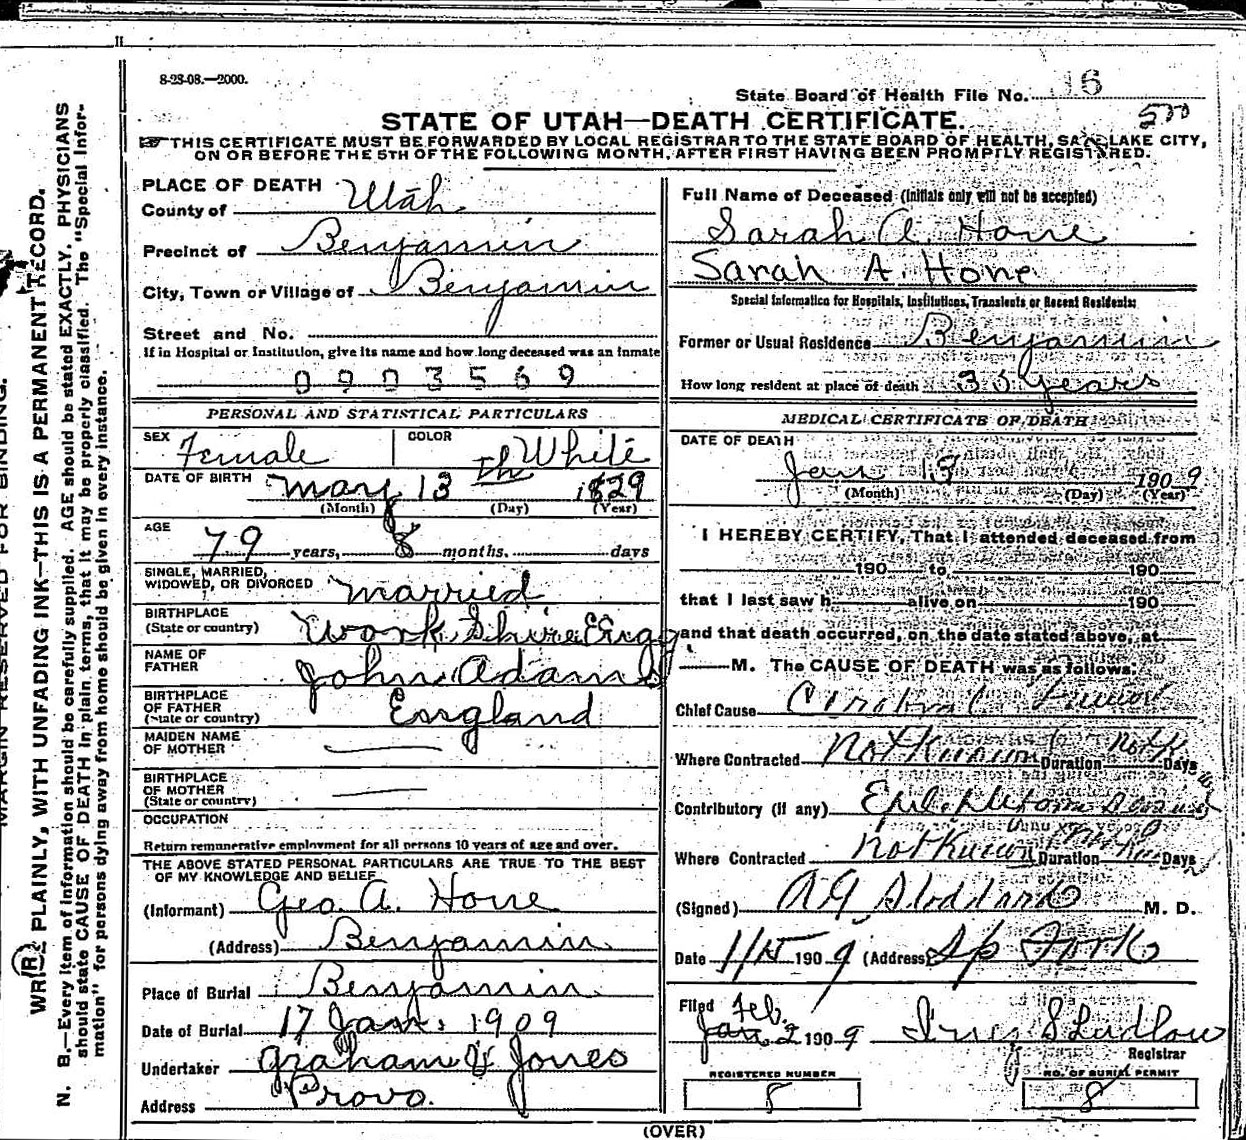 8-28-08.—2000.
State Board of Health File No. 16
500
STATE OF UTAH—DEATH CERTIFICATE.
THIS CERTIFICATE MUST BE FORWARDED BY LOCAL REGISTRAR TO THE STATE BOARD OF HEALTH, SALT LAKE CITY,
ON OR BEFORE THE 5TH OF THE FOLLOWING MONTH, AFTER FIRST HAVING BEEN PROMPTLY REGISTERED.
MARGIN RESERVED FOR BINDING.
WRITE PLAINLY, WITH UNFADING INK—THIS IS A PERMANENT RECORD.
N. B.—Every item of information should be carefully supplied. AGE should be stated EXACTLY. PHYSICIANS
should state CAUSE OF DEATH in plain terms, that it may be properly classified. The "Special Infor-
mation" for persons dying away from home should be given in every instance.
PLACE OF DEATH
County of Utah
Precinct of Benjamin
City, Town or Village of Benjamin
Street and No.
If in Hospital or Institution, give its name and how long deceased was an inmate
0 9 0 3 5 6 9
PERSONAL AND STATISTICAL PARTICULARS
SEX Female COLOR White
DATE OF BIRTH May 13 th 1829
(Month) (Day) (Year)
AGE 79 years, 8 months, days
SINGLE, MARRIED,
WIDOWED, OR DIVORCED married
BIRTHPLACE
(State or country) Work Shire Eng
NAME OF
FATHER John Adams
BIRTHPLACE
OF FATHER England
(State or country)
MAIDEN NAME
OF MOTHER
BIRTHPLACE
OF MOTHER
(State or country)
OCCUPATION
Return remunerative employment for all persons 10 years of age and over.
THE ABOVE STATED PERSONAL PARTICULARS ARE TRUE TO THE BEST
OF MY KNOWLEDGE AND BELIEF
(Informant) Geo. A. Hone
(Address) Benjamin
Place of Burial Benjamin
Date of Burial 17 Jan. 1909
Undertaker Graham & Jones
Address Provo.
Full Name of Deceased (Initials only will not be accepted)
Sarah A. Hone
Sarah A. Hone
Special Information for Hospitals, Institutions, Transients or Recent Residents:
Former or Usual Residence Benjamin
How long resident at place of death 35 years
MEDICAL CERTIFICATE OF DEATH
DATE OF DEATH
Jan 13 1909
(Month) (Day) (Year)
I HEREBY CERTIFY, That I attended deceased from
190 to 190
that I last saw h alive on 190
and that death occurred, on the date stated above, at
M. The CAUSE OF DEATH was as follows:
Chief Cause
Where Contracted Not Known Duration Not K Days
Contributory (if any)
Where Contracted Not Known Duration Days
(Signed) A G Stoddard M. D.
Date 1/15 1909 (Address) Sp Fork
Filed Feb.
Jan 2 1909
Registrar
REGISTERED NUMBER NO. OF BURIAL PERMIT
8 8
(OVER)